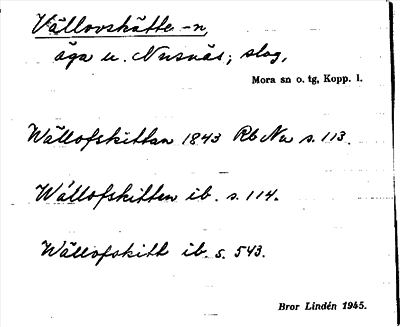 Vällovskätte -n,
äga u. Nusnäs; slog,
Mora sn o. tg, Kopp. l.
Wällofskittan 1843 Rb Nu s. 113.
Wällofskitten ib. s. 114.
Wällofskitt ib. s. 543.
Bror Lindén 1945.